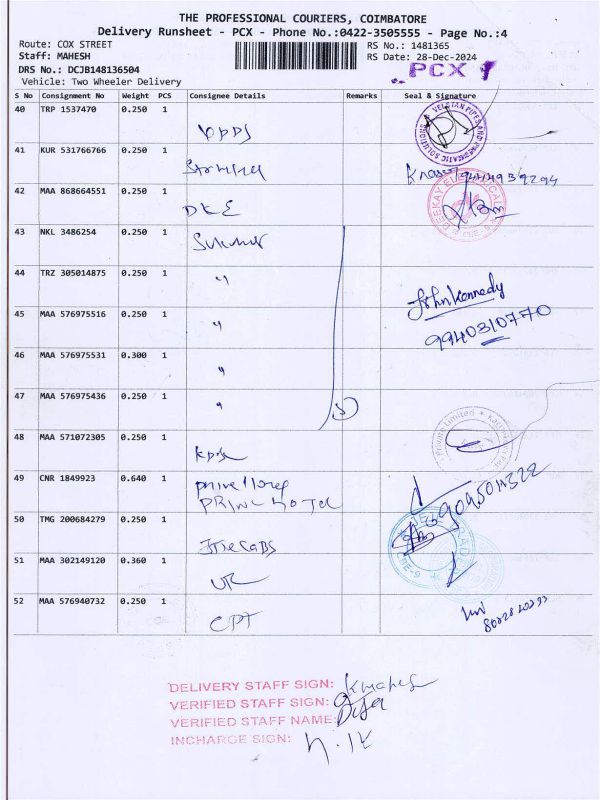 THE PROFESSIONAL COURIERS, COIMBATORE
Delivery Runsheet - PCX - Phone No.:0422-3505555 - Page No.:4
Route: COX STREET
Staff: MAHESH
DRS No.: DCJB148136504
Vehicle: Two Wheeler Delivery
RS No.: 1481365
RS Date: 28-Dec-2024
PCX
S No Consignment No Weight PCS Consignee Details Remarks Seal & Signature
40 TRP 1537470 0.250 1
VELSTAN PIPES AND PNEUMATIC SOLUTIONS
41 KUR 531766766 0.250 1
42 MAA 868664551 0.250 1
DKE
DEEKAY ELECTRICAL
43 NKL 3486254 0.250 1
44 TRZ 305014875 0.250 1 "
John Kennedy
45 MAA 576975516 0.250 1 "
9940310770
46 MAA 576975531 0.300 1 "
47 MAA 576975436 0.250 1 "
5
48 MAA 571072305 0.250 1
Private Limited
49 CNR 1849923 0.640 1
50 TMG 200684279 0.250 1
51 MAA 302149120 0.360 1
52 MAA 576940732 0.250 1
CPT
DELIVERY STAFF SIGN: K mahes
VERIFIED STAFF SIGN:
VERIFIED STAFF NAME:
INCHARGE SIGN: